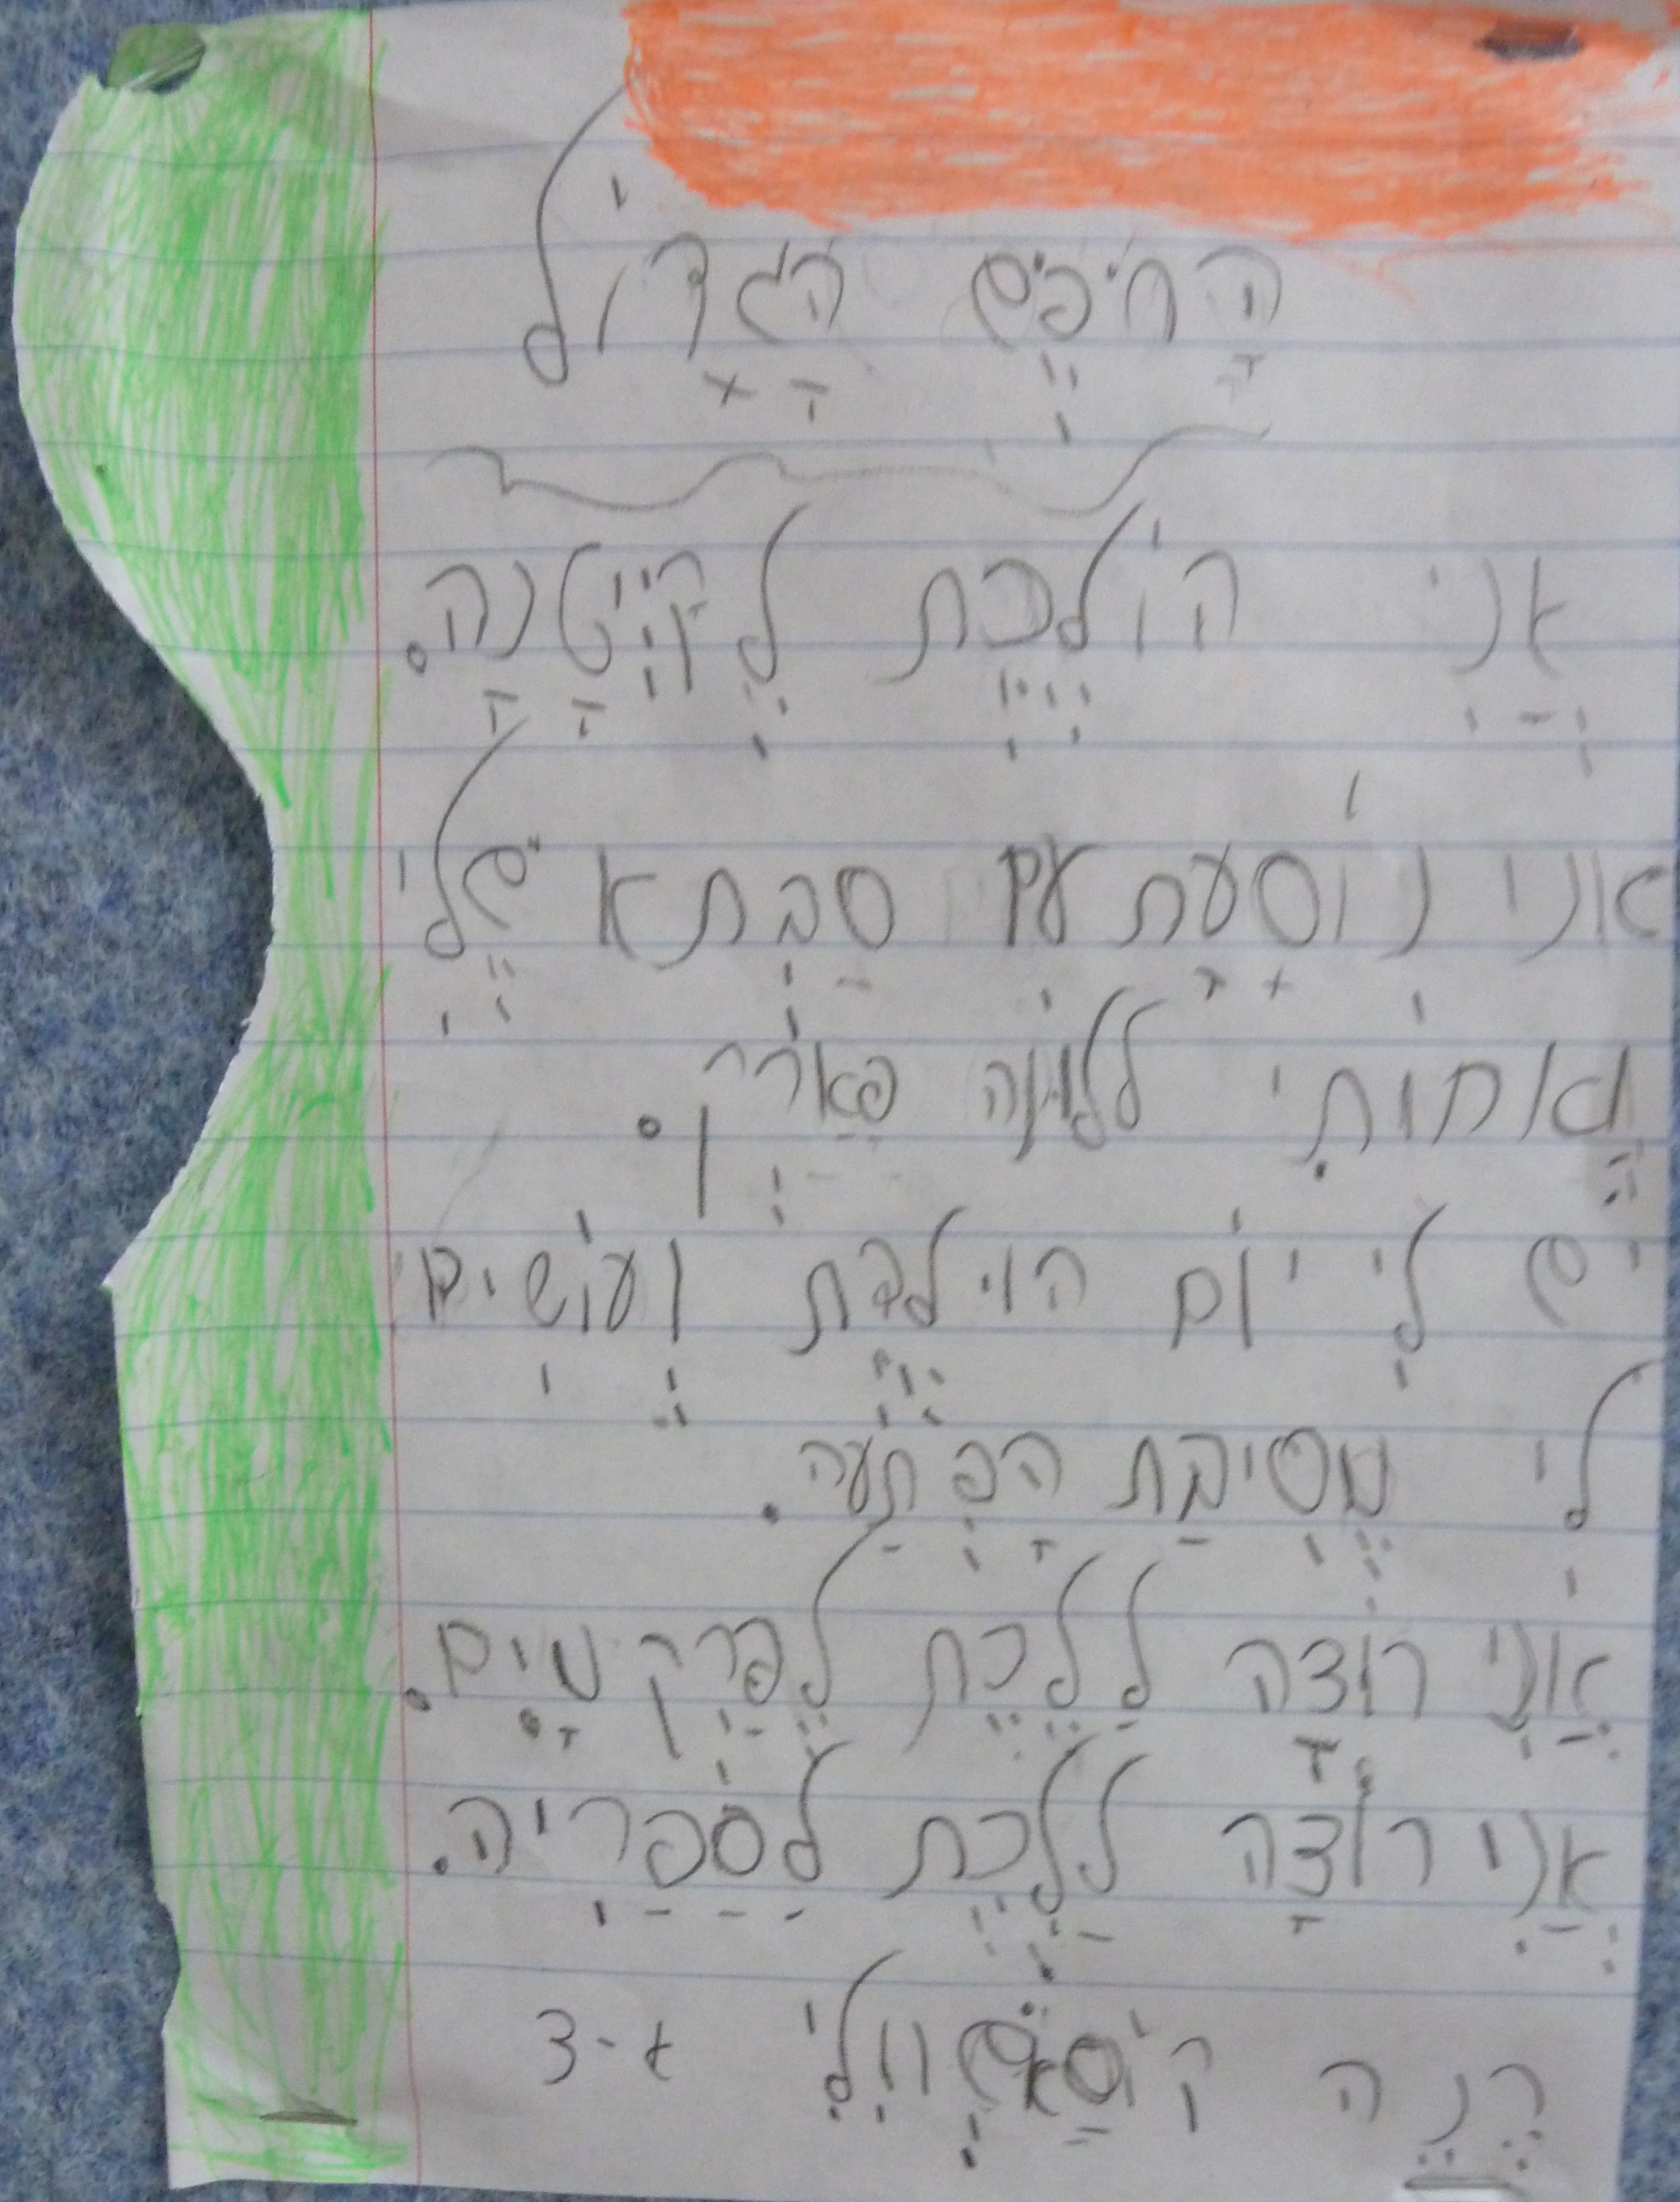 הַחוֹפֶּשׁ הַגָּדוֹל
אֲנִי הוֹלֶכֶת לְקַיְיטָנָה.
אני נוֹסָעָת עִם סַבְתא שֶׁלִי
וַאחוֹתִי ללוּנָה פַּארְק.
יש לִי יוֹם הוילדֶת וְעוֹשִׂים
לִי מְסִיבַּת הַפְתַעה.
אֲנִי רוֹצָה לַלֶכֶת לְפַּרְק מַיִם.
אֲנִי רוֹצָה לַלֶכֶת לַסַפַרִיה.
רֶנֶה א-3